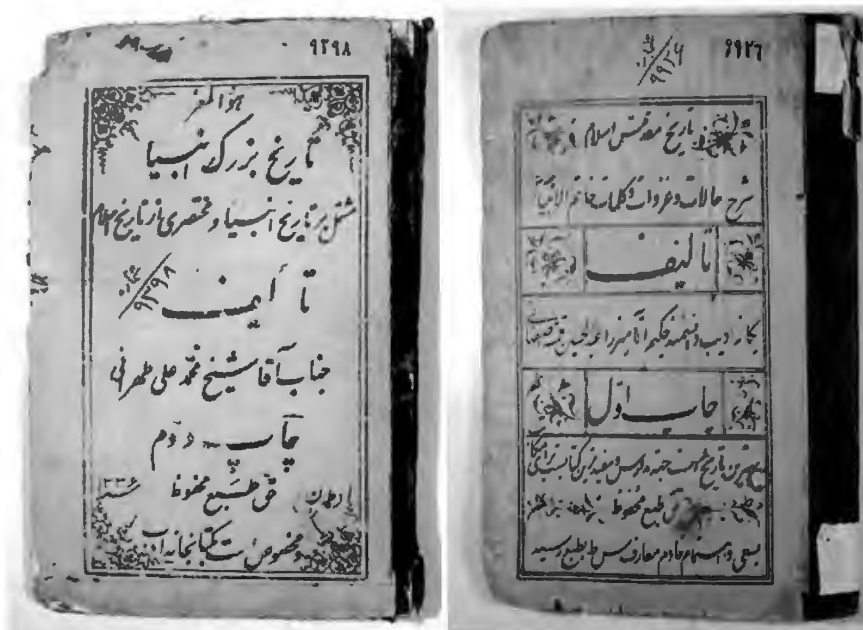 ۹۳۹۸
هوالمعز
تاریخ بزرگ انبیا
مشتمل بر تاریخ انبیا و مختصری از تاریخ اسلام
تألیف
۹۳۹۸
جناب آقا شیخ محمد علی طهرانی
چاپ دوم
حق طبع محفوظ
و مخصوص است کتابخانه
۶۹۲۶
تاریخ مقدس اسلام
شرح حالات و غزوات و کلمات خاتم الانبیاء
تالیف
یگانه ادیب دانشمند حکیم آقا میرزا عبدالحسین
چاپ اول
تاریخ است جهة مدارس و مفیدترین کتاب
حق طبع محفوظ
بسعی و اهتمام خادم معارف بطبع رسید